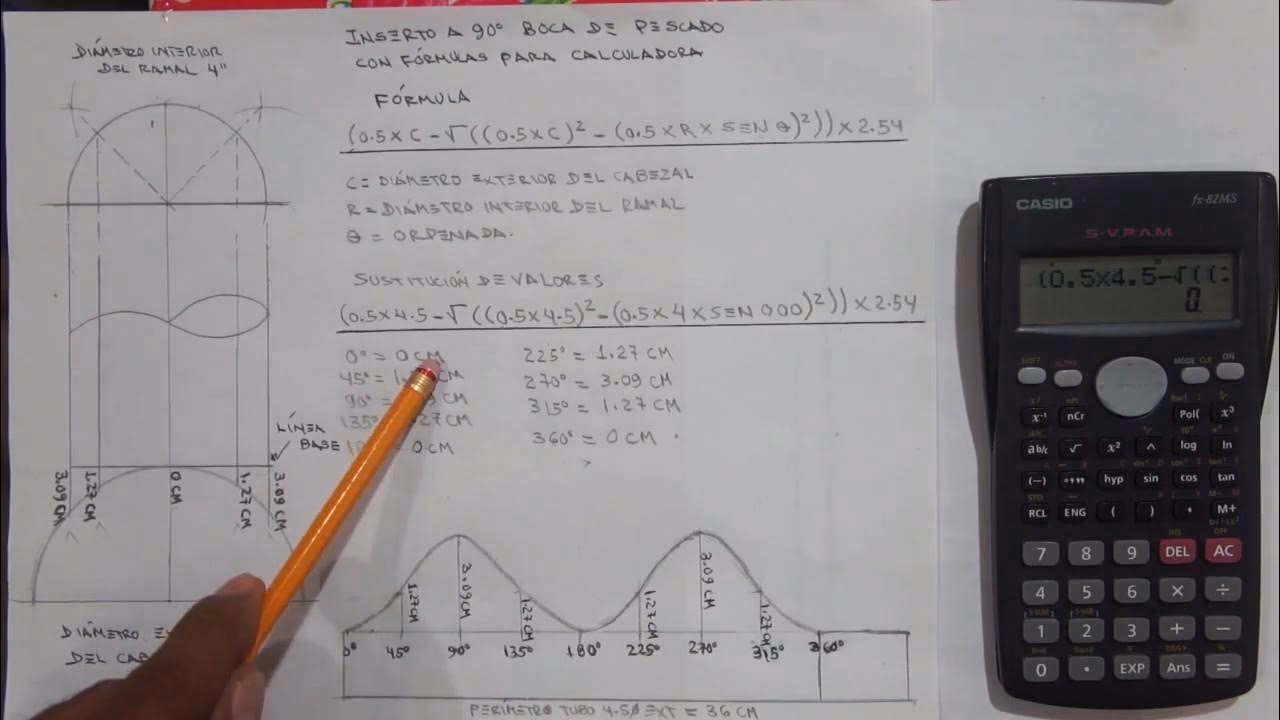 DIÁMETRO INTERIOR
DEL RAMAL 4"
INSERTO A 90° BOCA DE PESCADO
CON FÓRMULAS PARA CALCULADORA
FÓRMULA
(0.5 x C - √((0.5 x C)² - (0.5 x R x SEN θ)²)) x 2.54
C = DIÁMETRO EXTERIOR DEL CABEZAL
R = DIÁMETRO INTERIOR DEL RAMAL
θ = ORDENADA.
SUSTITUCIÓN DE VALORES
(0.5 x 4.5 - √((0.5 x 4.5)² - (0.5 x 4 x SEN 000)²)) x 2.54
0° = 0 CM
45° = 1. CM
90° = CM
135° 27 CM
0 CM
225° = 1.27 CM
270° = 3.09 CM
315° = 1.27 CM
360° = 0 CM
LÍNEA
BASE
3.09 CM
1.27 CM
0 CM
1.27 CM
3.09 CM
DIÁMETRO
DEL
1.27 CM
3.09 CM
1.27 CM
1.27 CM
3.09 CM
1.27 CM
0° 45° 90° 135° 180° 225° 270° 315° 360°
PERÍMETRO TUBO 4.5 Ø EXT = 36 CM
CASIO fx-82MS
S-V.P.A.M.
(0.5x4.5-√((:
0.
SHIFT ALPHA MODE CLR ON
x⁻¹ nCr Pol( x³
ab/c √ x² ^ log ln
(−) °''' hyp sin cos tan
RCL ENG ( ) , M+
7 8 9 DEL AC
4 5 6 × ÷
1 2 3 + −
0 . EXP Ans =